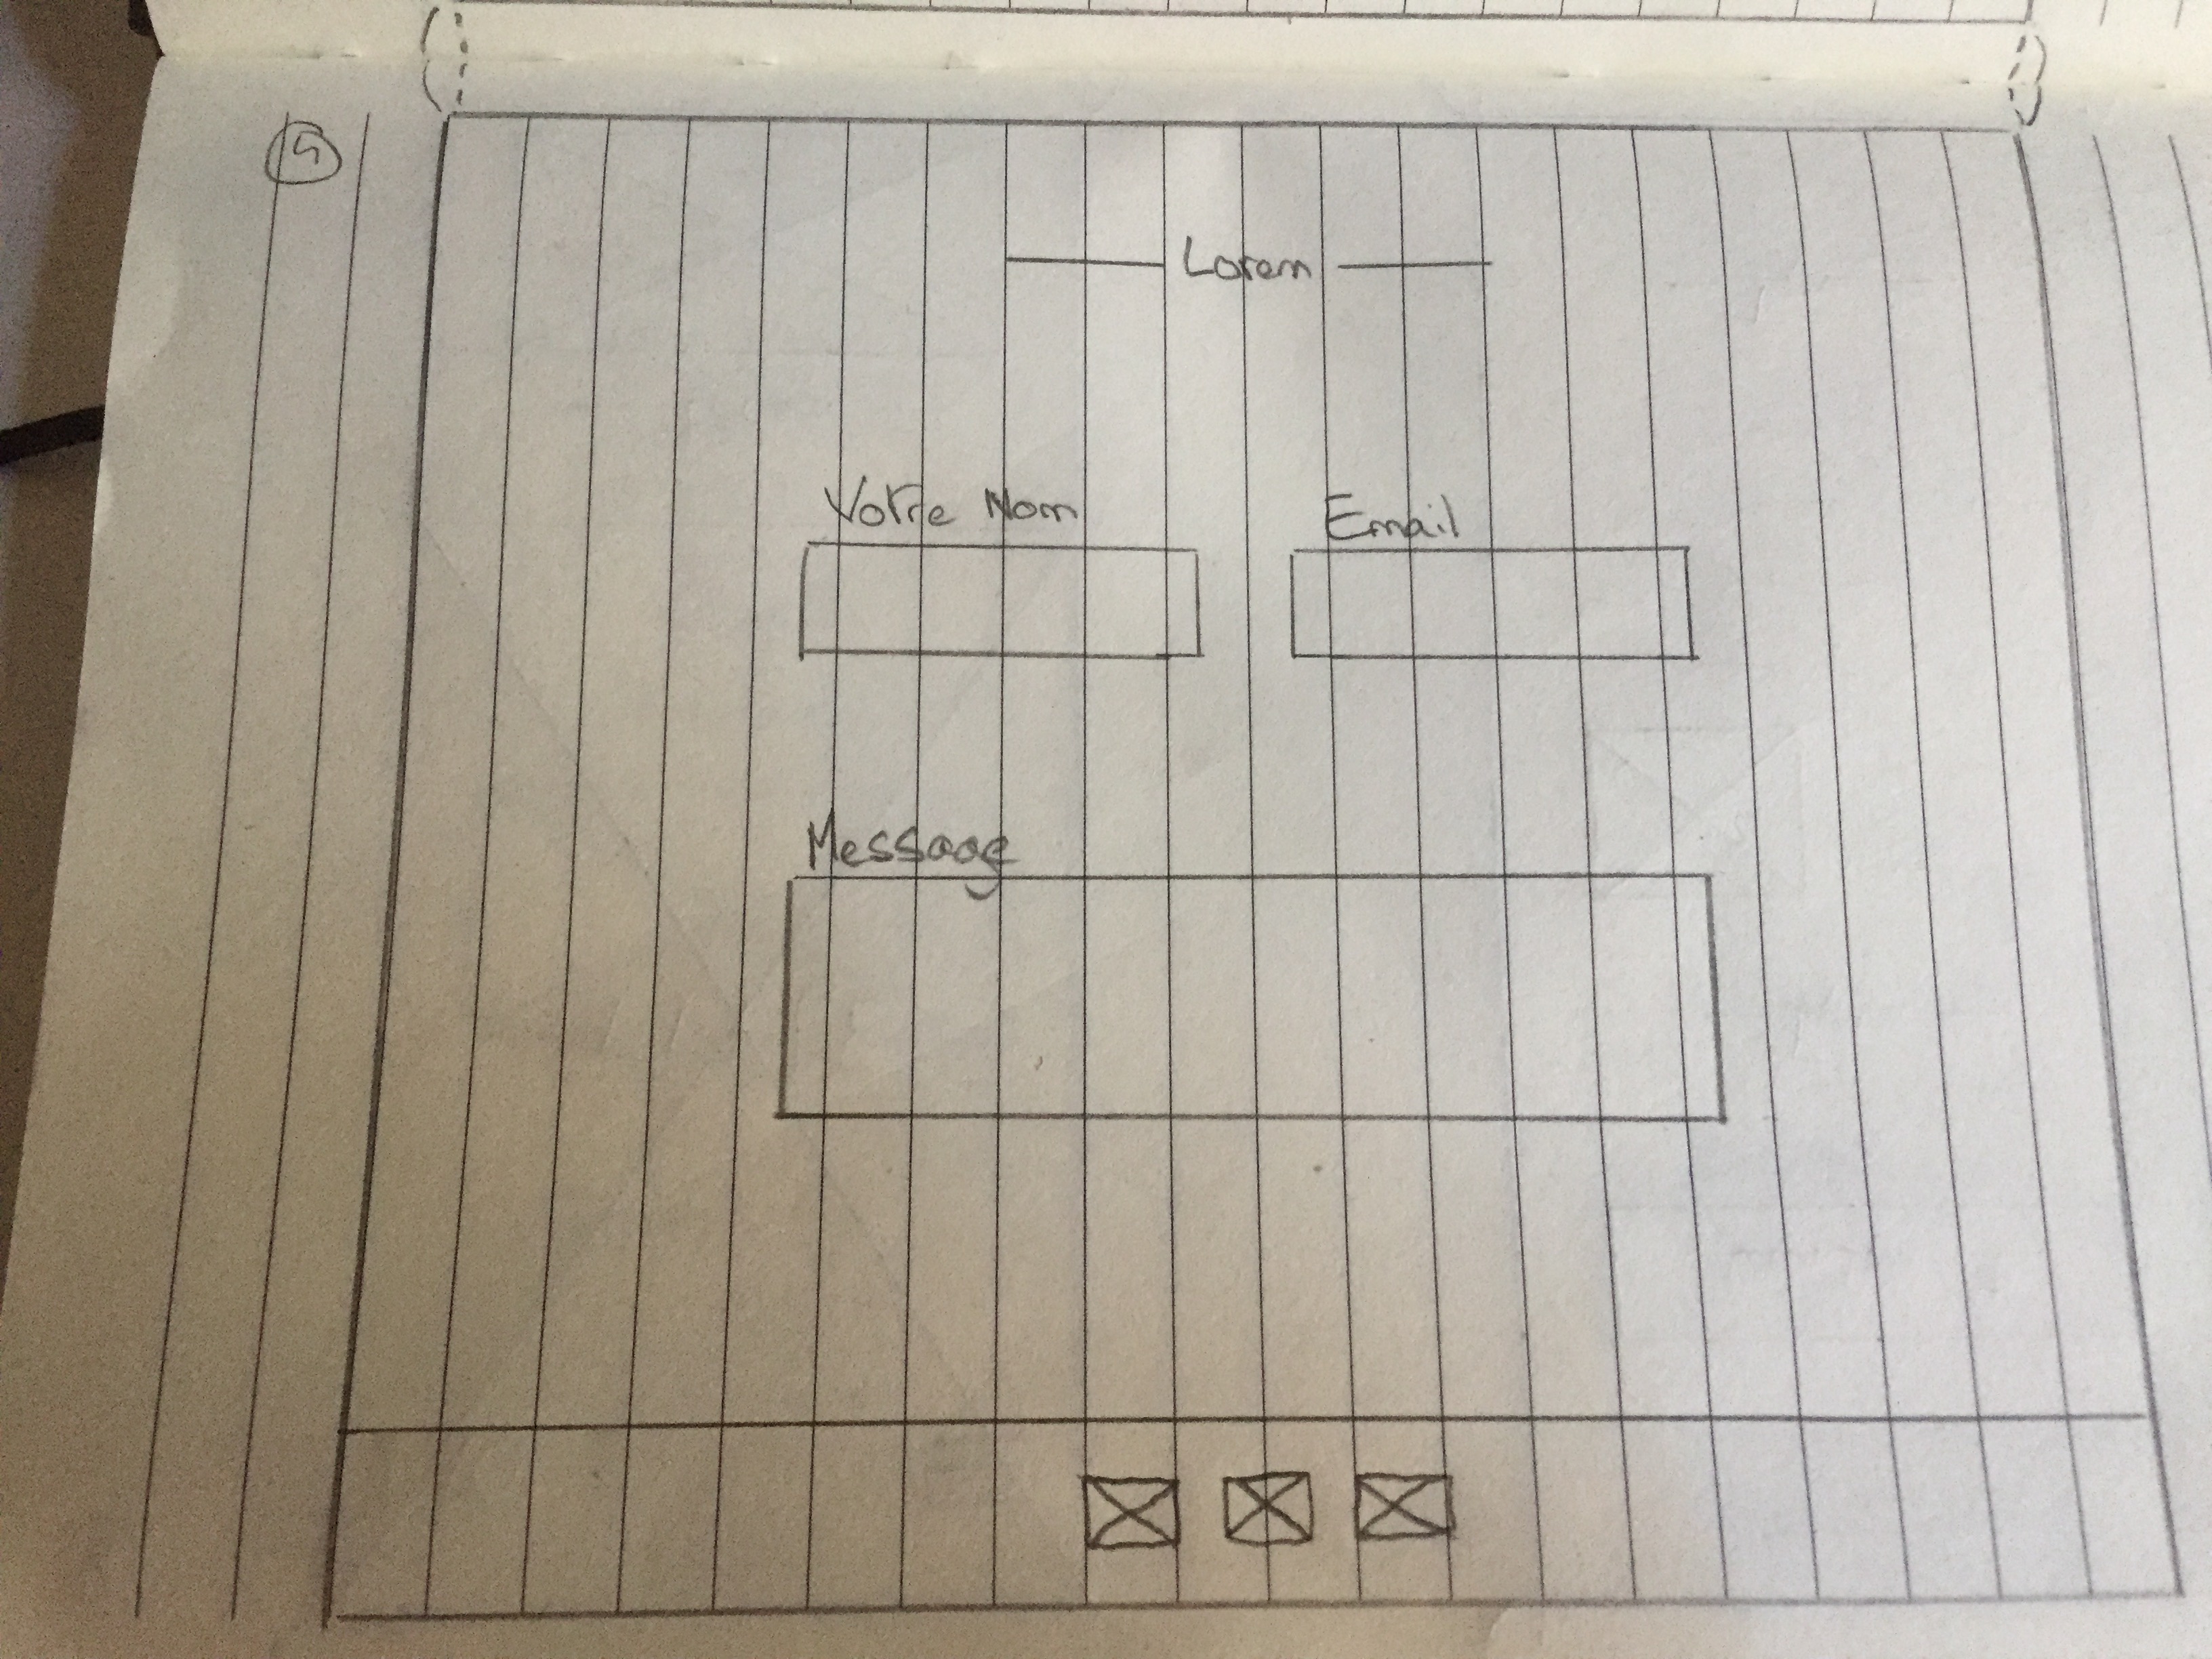 5
Lorem
Votre Nom Email
Message